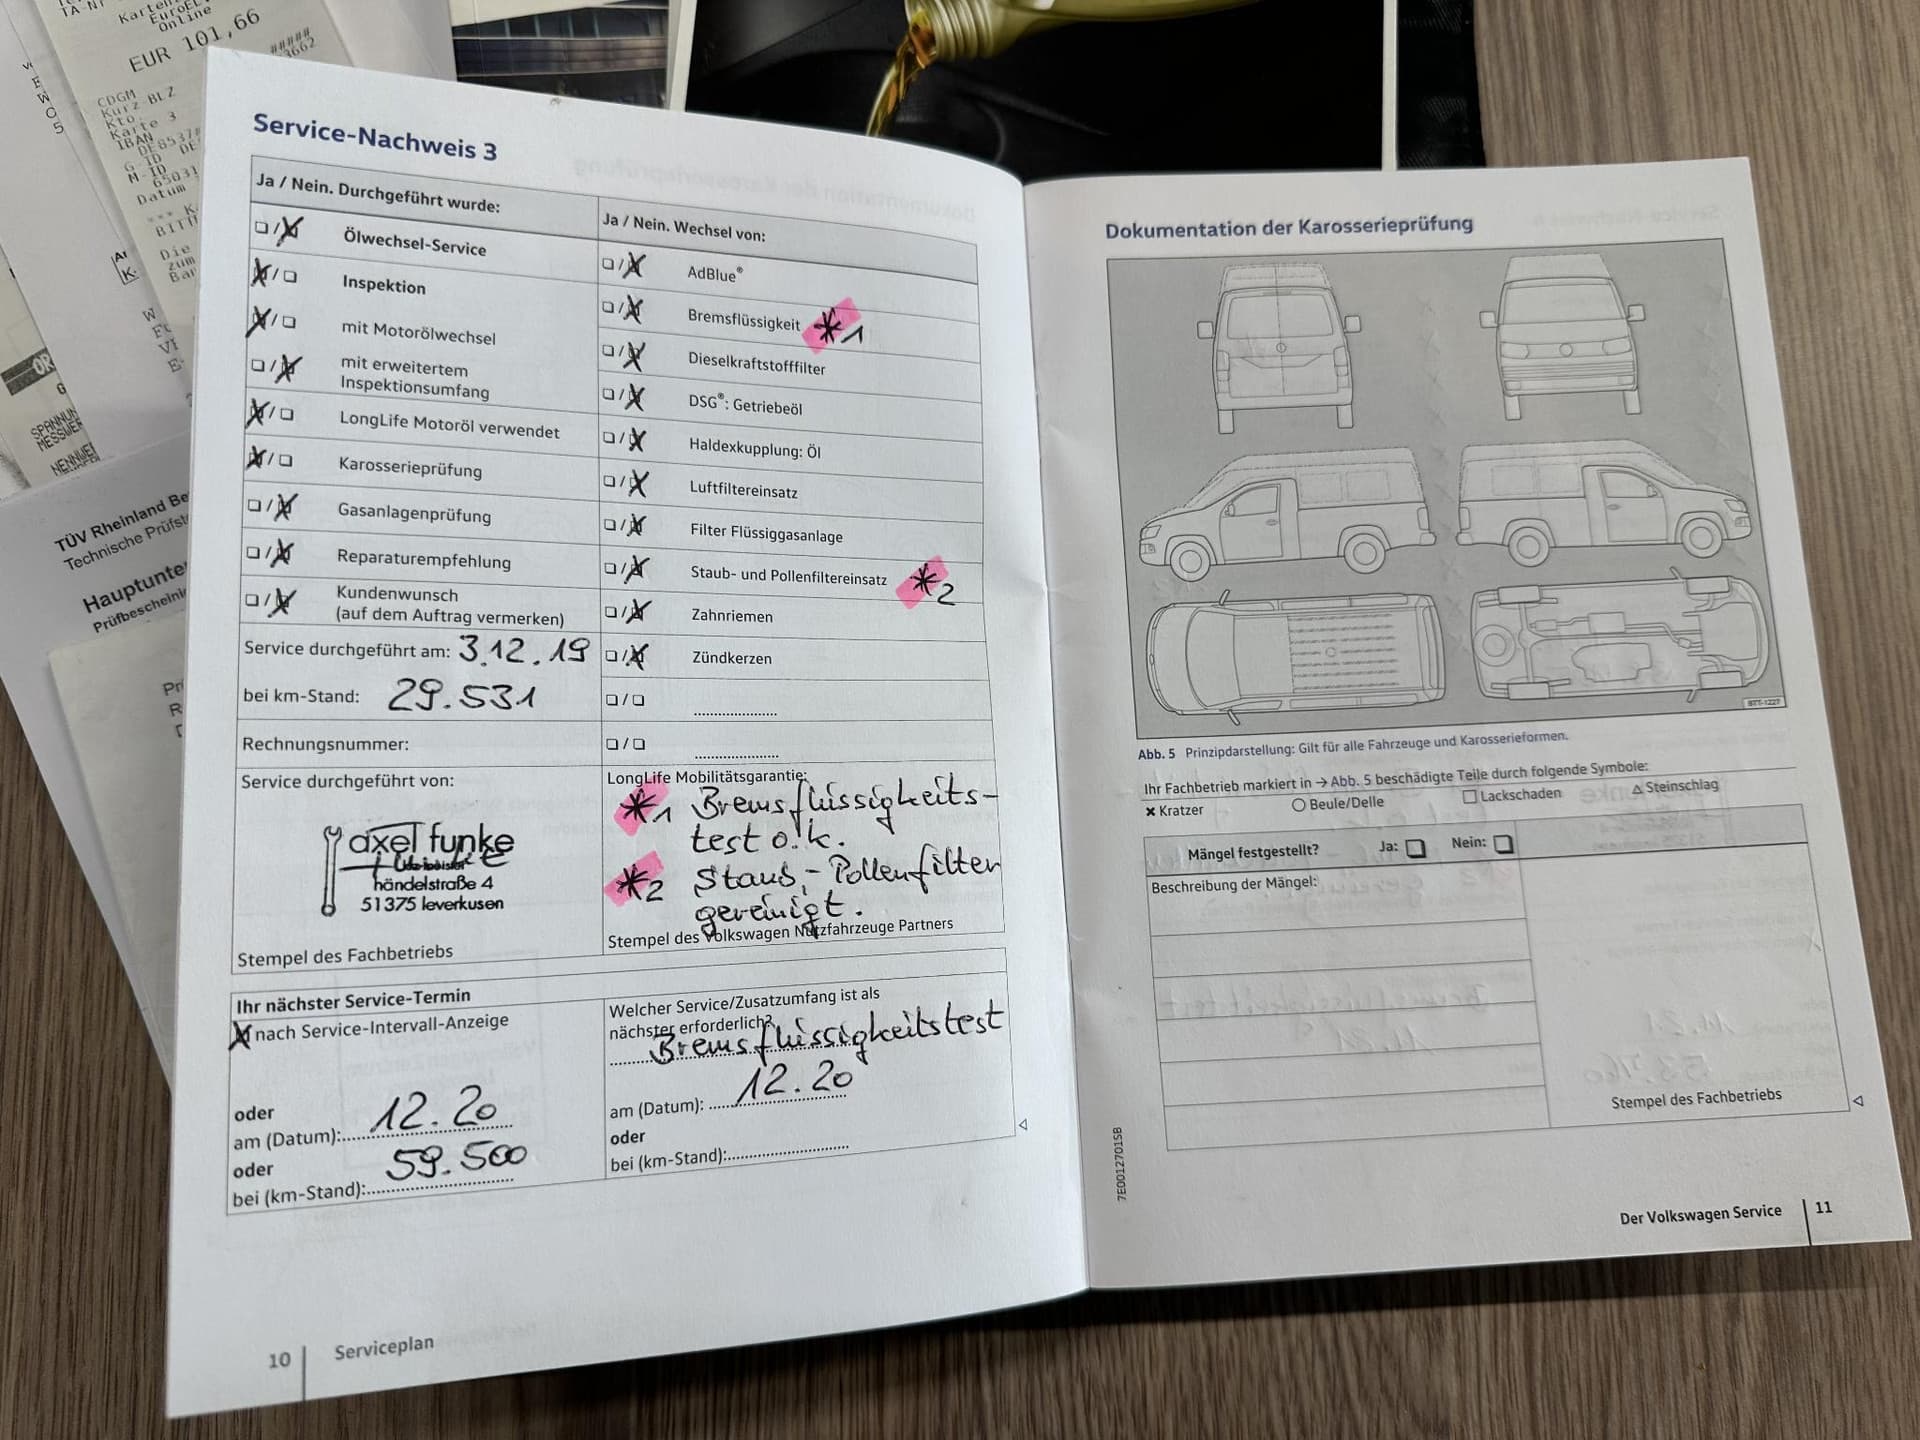 Karten
EuroEL
Online
EUR 101,66
#####
3662
CDGM
Kurz-BLZ
Kto.
Karte 3
IBAN
DE8537#
G-ID DE
M-ID
65031
Datum
*** K
Die
zum
Bar
TÜV Rheinland Be
Technische Prüfst
Hauptunte
Prüfbescheini
SPANNUN
MESSWER
NENNWE
Service-Nachweis 3
Ja / Nein. Durchgeführt wurde:
Ölwechsel-Service
Inspektion
mit Motorölwechsel
mit erweitertem
Inspektionsumfang
LongLife Motoröl verwendet
Karosserieprüfung
Gasanlagenprüfung
Reparaturempfehlung
Kundenwunsch
(auf dem Auftrag vermerken)
Service durchgeführt am: 3.12.19
bei km-Stand: 29.531
Rechnungsnummer:
Service durchgeführt von:
axel funke
händelstraße 4
51375 leverkusen
Stempel des Fachbetriebs
Ja / Nein. Wechsel von:
AdBlue®
Bremsflüssigkeit *1
Dieselkraftstofffilter
DSG®: Getriebeöl
Haldexkupplung: Öl
Luftfiltereinsatz
Filter Flüssiggasanlage
Staub- und Pollenfiltereinsatz *2
Zahnriemen
Zündkerzen
LongLife Mobilitätsgarantie:
*1 Bremsflüssigkeits-
test o.k.
*2 Staub,- Pollenfilter
gereinigt.
Stempel des Volkswagen Nutzfahrzeuge Partners
Ihr nächster Service-Termin
nach Service-Intervall-Anzeige
oder
am (Datum): 12.20
oder
bei (km-Stand): 59.500
Welcher Service/Zusatzumfang ist als
nächster erforderlich?
Bremsflüssigkeitstest
am (Datum): 12.20
oder
bei (km-Stand):
10 Serviceplan
Dokumentation der Karosserieprüfung
B7T-1227
Abb. 5 Prinzipdarstellung: Gilt für alle Fahrzeuge und Karosserieformen.
Ihr Fachbetrieb markiert in → Abb. 5 beschädigte Teile durch folgende Symbole:
× Kratzer ○ Beule/Delle □ Lackschaden △ Steinschlag
Mängel festgestellt? Ja: Nein:
Beschreibung der Mängel:
Stempel des Fachbetriebs
7E0012701SB
Der Volkswagen Service 11